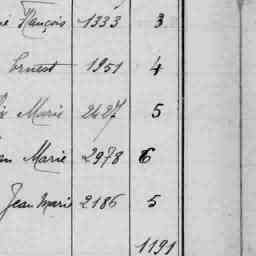 François 1333 3
Ernest 1951 4
Marie 2427 5
Marie 2978 6
Jean Marie 2186 5
1191